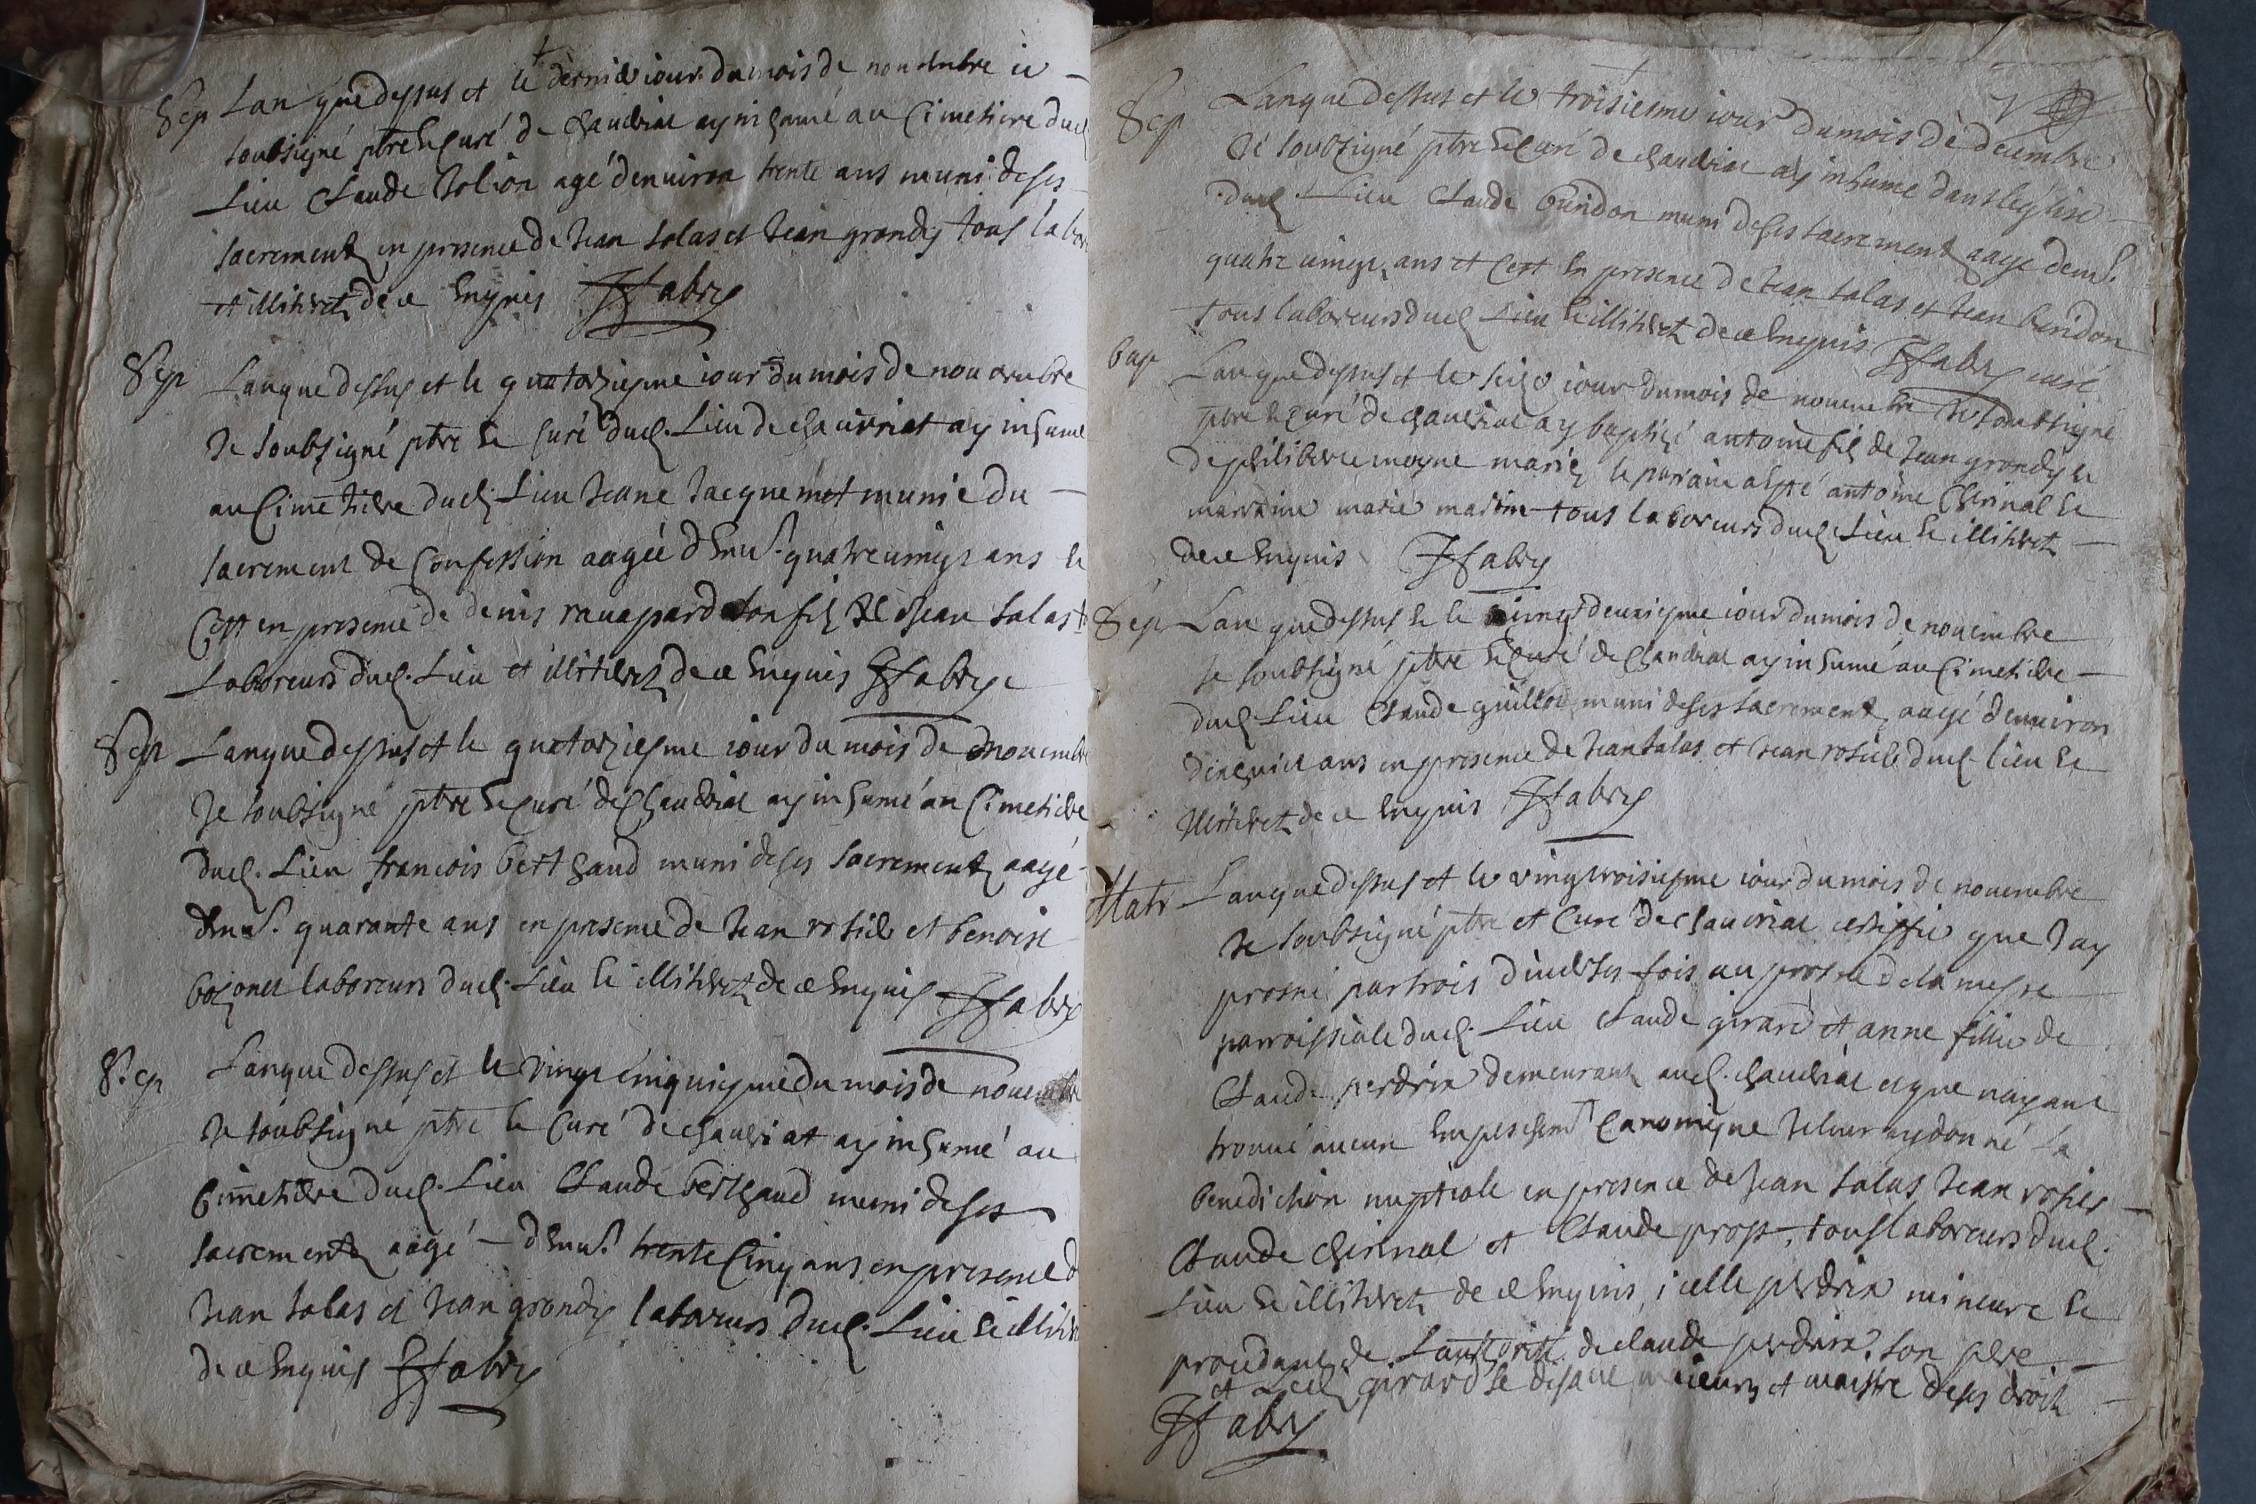 Sep Lan que dessus et le dernier iour du mois de nouembre ie
soubsigné ptre & curé de chauuriat ay inhumé au Cimetiere dud
Lieu Claude Jolion agé denuiron trente ans muni de ses
sacrementz en presence de Jean salas et Jean grandz tous labor
et illiteretz de ce Enquis Ffabry
Sep Lan que dessus et le quatorziesme iour du mois de nouembre
Je soubsigné ptre & Curé dud. Lieu de chauuriat ay inhumé
au Cimetiere dud. Lieu Jeane Jacquemet munie du
sacrement de Confession aagée d'enu.^n quatreuingt ans &
Cest en presence de denis rauapard son filz & Jean salas
Laboreurs dud. Lieu et illiteretz de ce Enquis Ffabry
Sep Lan que dessus et le quatorziesme iour du mois de nouembre
Je soubsigné ptre & curé de Chauuriat ay inhumé au Cimetiere
dud. Lieu francois berthaud muni de ses sacrementz aagé
d'enu.^n quarante ans en presence de Jean rosier et benoist
bozonet laboreurs dud. Lieu & illiteretz de ce Enquis Ffabry
Sep Lan que dessus et le vingt cinquiesme du mois de nouembre
Je soubsigné ptre & Curé de chauuriat ay inhumé au
Cimetiere dud. Lieu Claude berthaud muni de ses
sacrementz aagé d'enu.^n trente Cinq ans en presence d
Jean salas et Jean grandz laboreurs dud. Lieu & illiter
de ce Enquis Ffabry
Sep Lan que dessus et le troisiesme iour du mois de decembre
Je soubzigné ptre & Curé de chauuriat ay inhumé dans léglise
dud. Lieu Claude buridon muni de ses sacrementz aagé denu.^n
quatre uingt ans et Cest En presence de Jean salas et Jean buridon
tous laboreurs dud. Lieu & illiteretz de ce Enquis Ffabry curé
bap Lan que dessus et le seize iour du mois de nouembre Je soubsigné
ptre & curé de chauuriat ay baptizé antoine filz de Jean grandz &
de philiberte moyne mariez le parrain a esté antoine Cherinal &
marraine marie martin tous laboreurs dud. Lieu & illiteretz
de ce Enquis Ffabry
Sep Lan que dessus & le uingt deuxiesme iour du mois de nouembre
Je soubsigné ptre & curé de chauuriat ay inhumé au Cimetiere
dud. Lieu Claude guillot muni de ses sacrementz aagé denuiron
dixhuict ans en presence de Jean salas et Jean rosier dud. lieu &
illiteretz de ce Enquis Ffabry
Matr Lan que dessus et le vingt troisiesme iour du mois de nouembre
Je soubsigné ptre et Curé de chauuriat certiffie que Jay
prosné par trois diuerses fois au prosne de la messe
parroissiale dud. Lieu Claude girard et anne fillie de
Claude perdrix demeurantz aud. chauuriat et que nayant
trouué aucun Empeschem.^t Canonique Je leur ay donné La
benediction nuptiale en presence de Jean salas, Jean rosier
Claude Cherinal et Claude prost, tous laboreurs dud.
Lieu & illiteretz de ce Enquis, icelle perdrix mineure &
procedante de Lauthorité de claude perdrix son pere
et led. girard se disant maieur et maistre de ses droitz
Ffabry